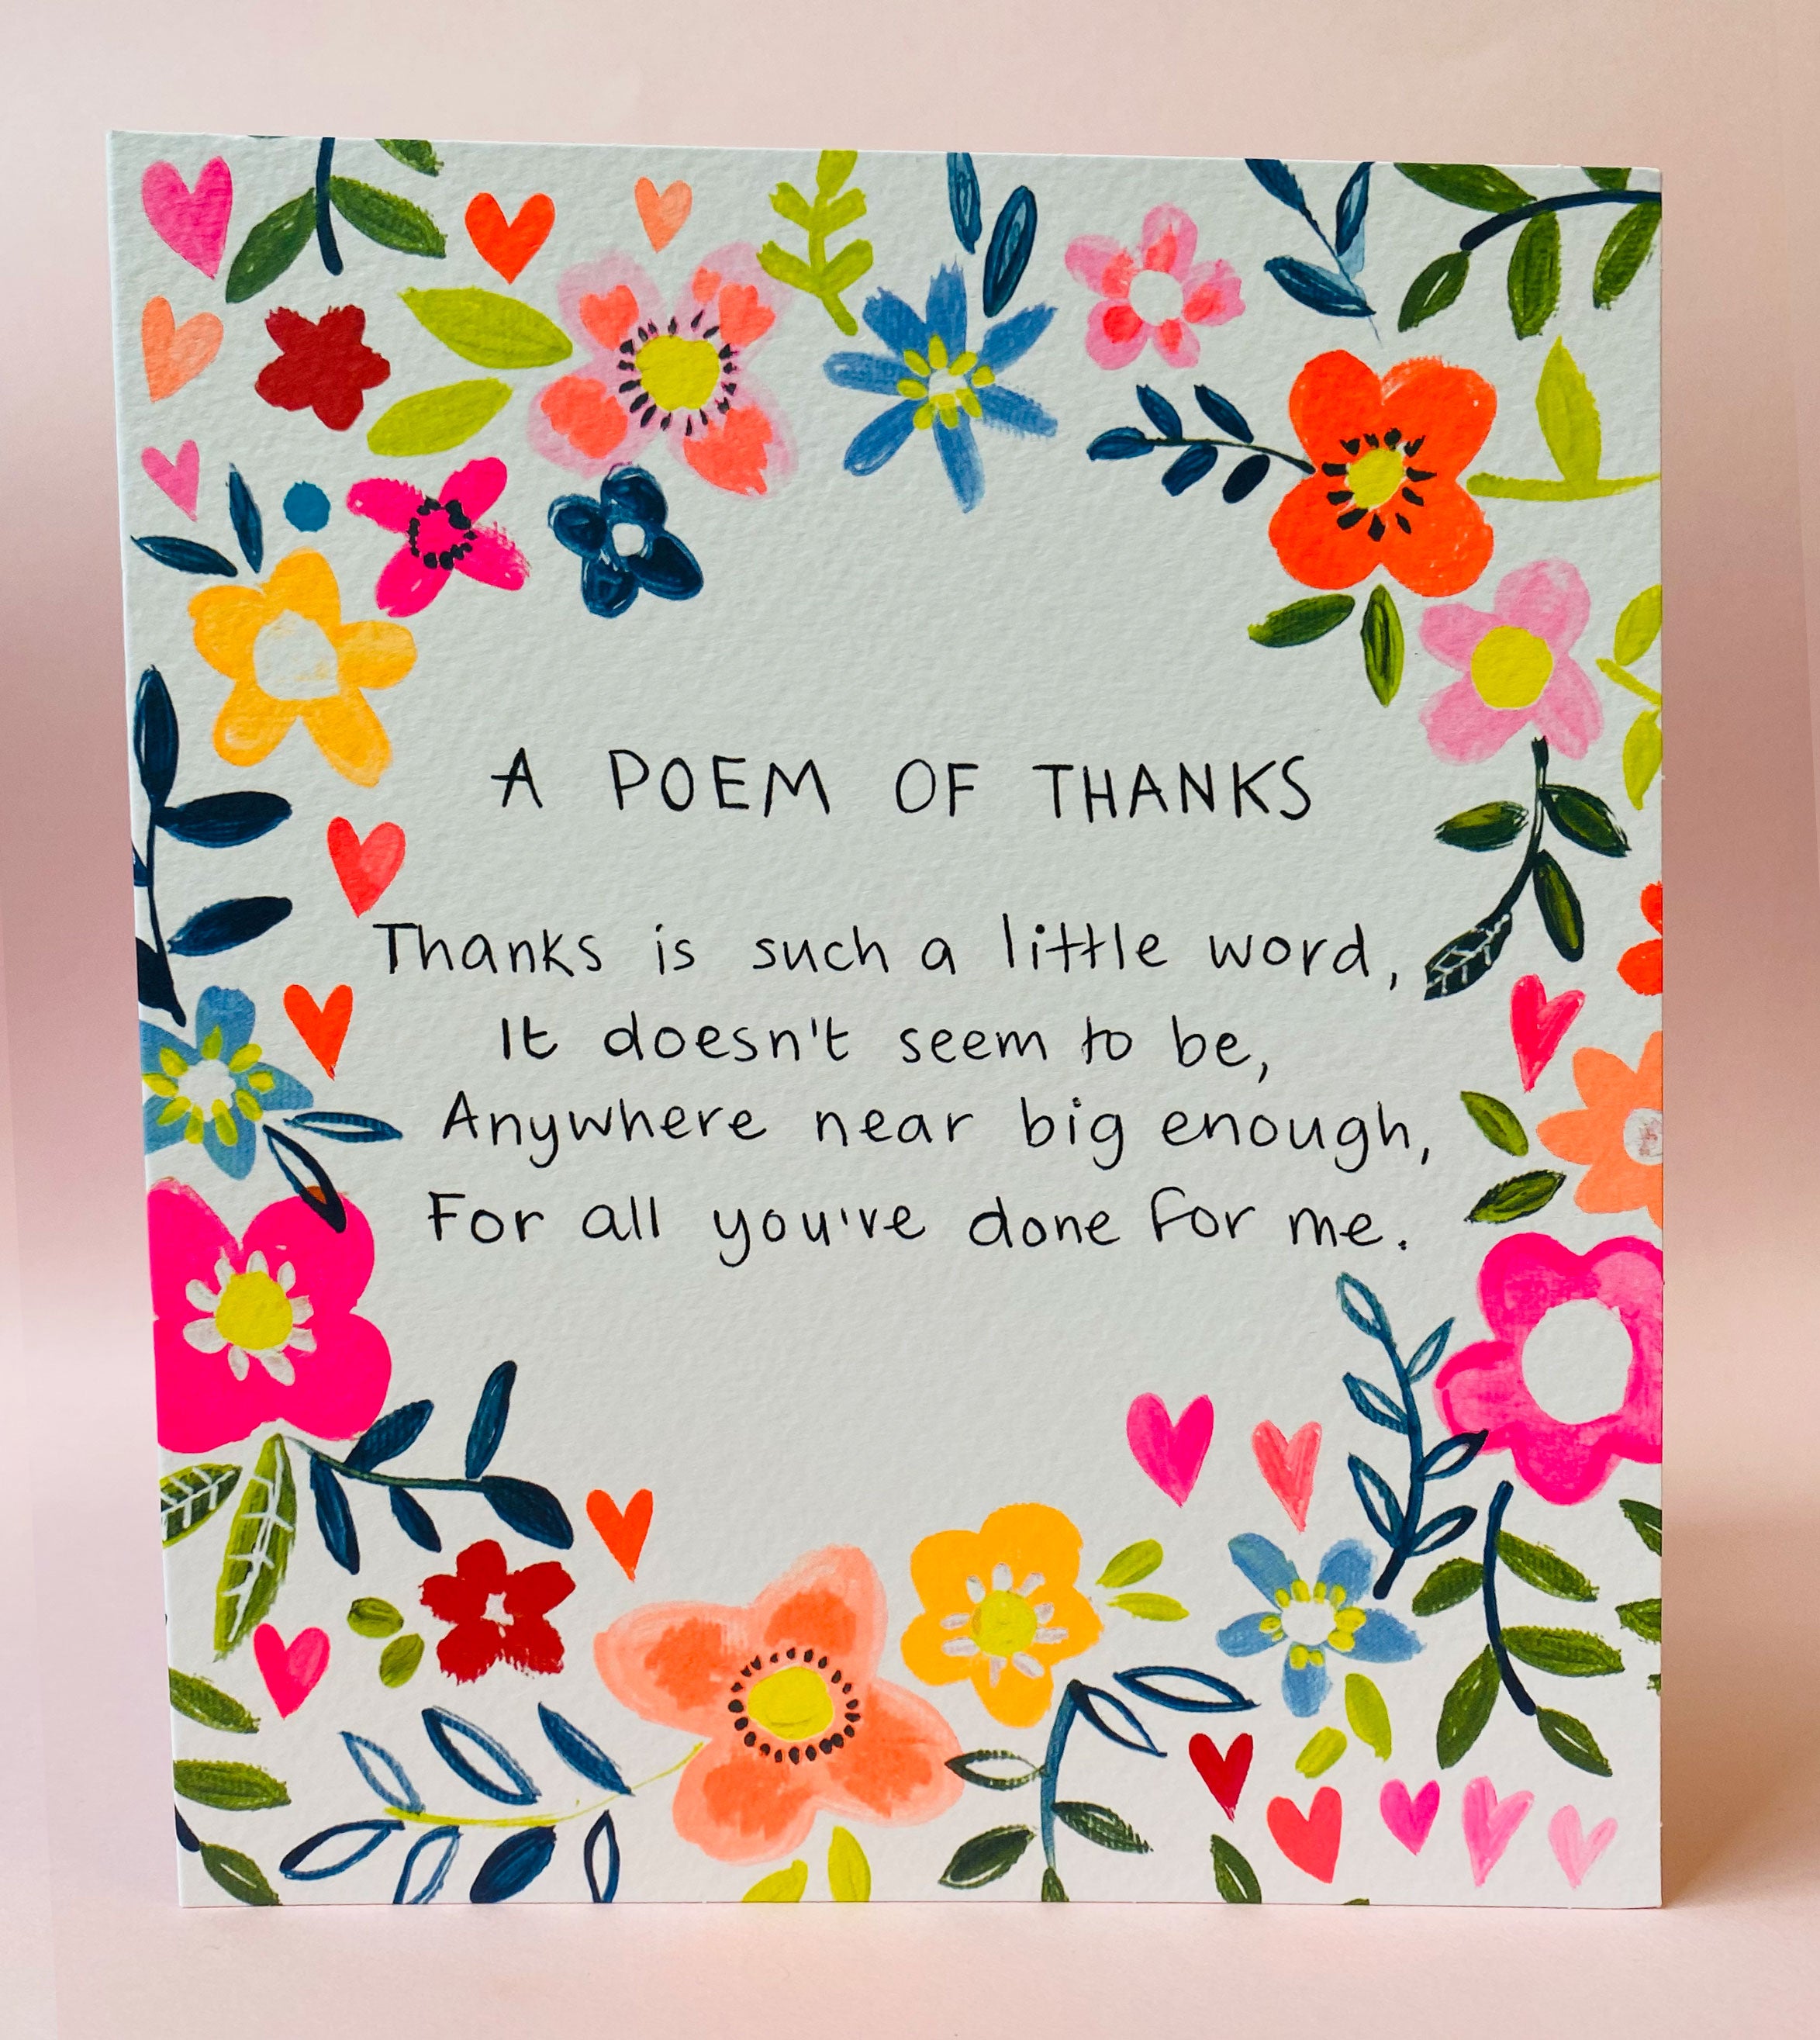 A POEM OF THANKS
Thanks is such a little word,
It doesn't seem to be,
Anywhere near big enough,
For all you've done for me.